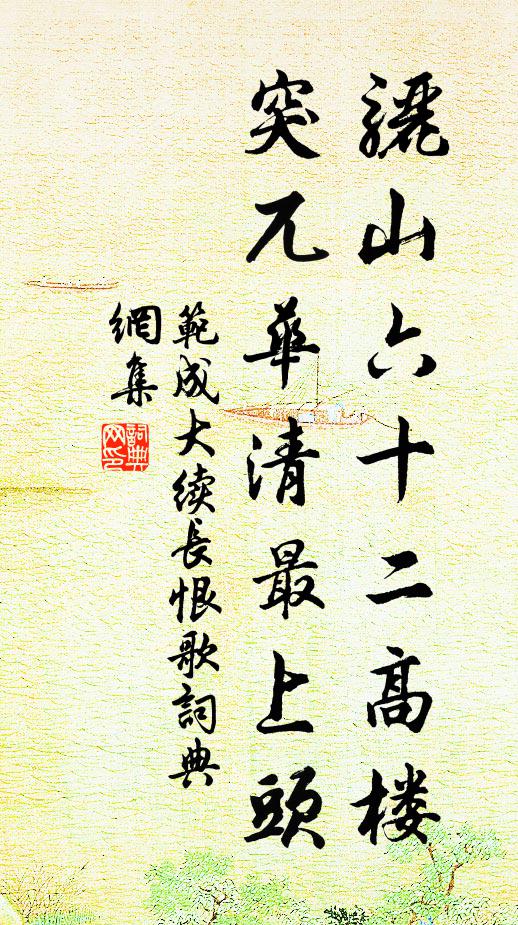 骊山六十二高楼
突兀華清最上頭
範成大续長恨歌詞典
網集
詞典
网印